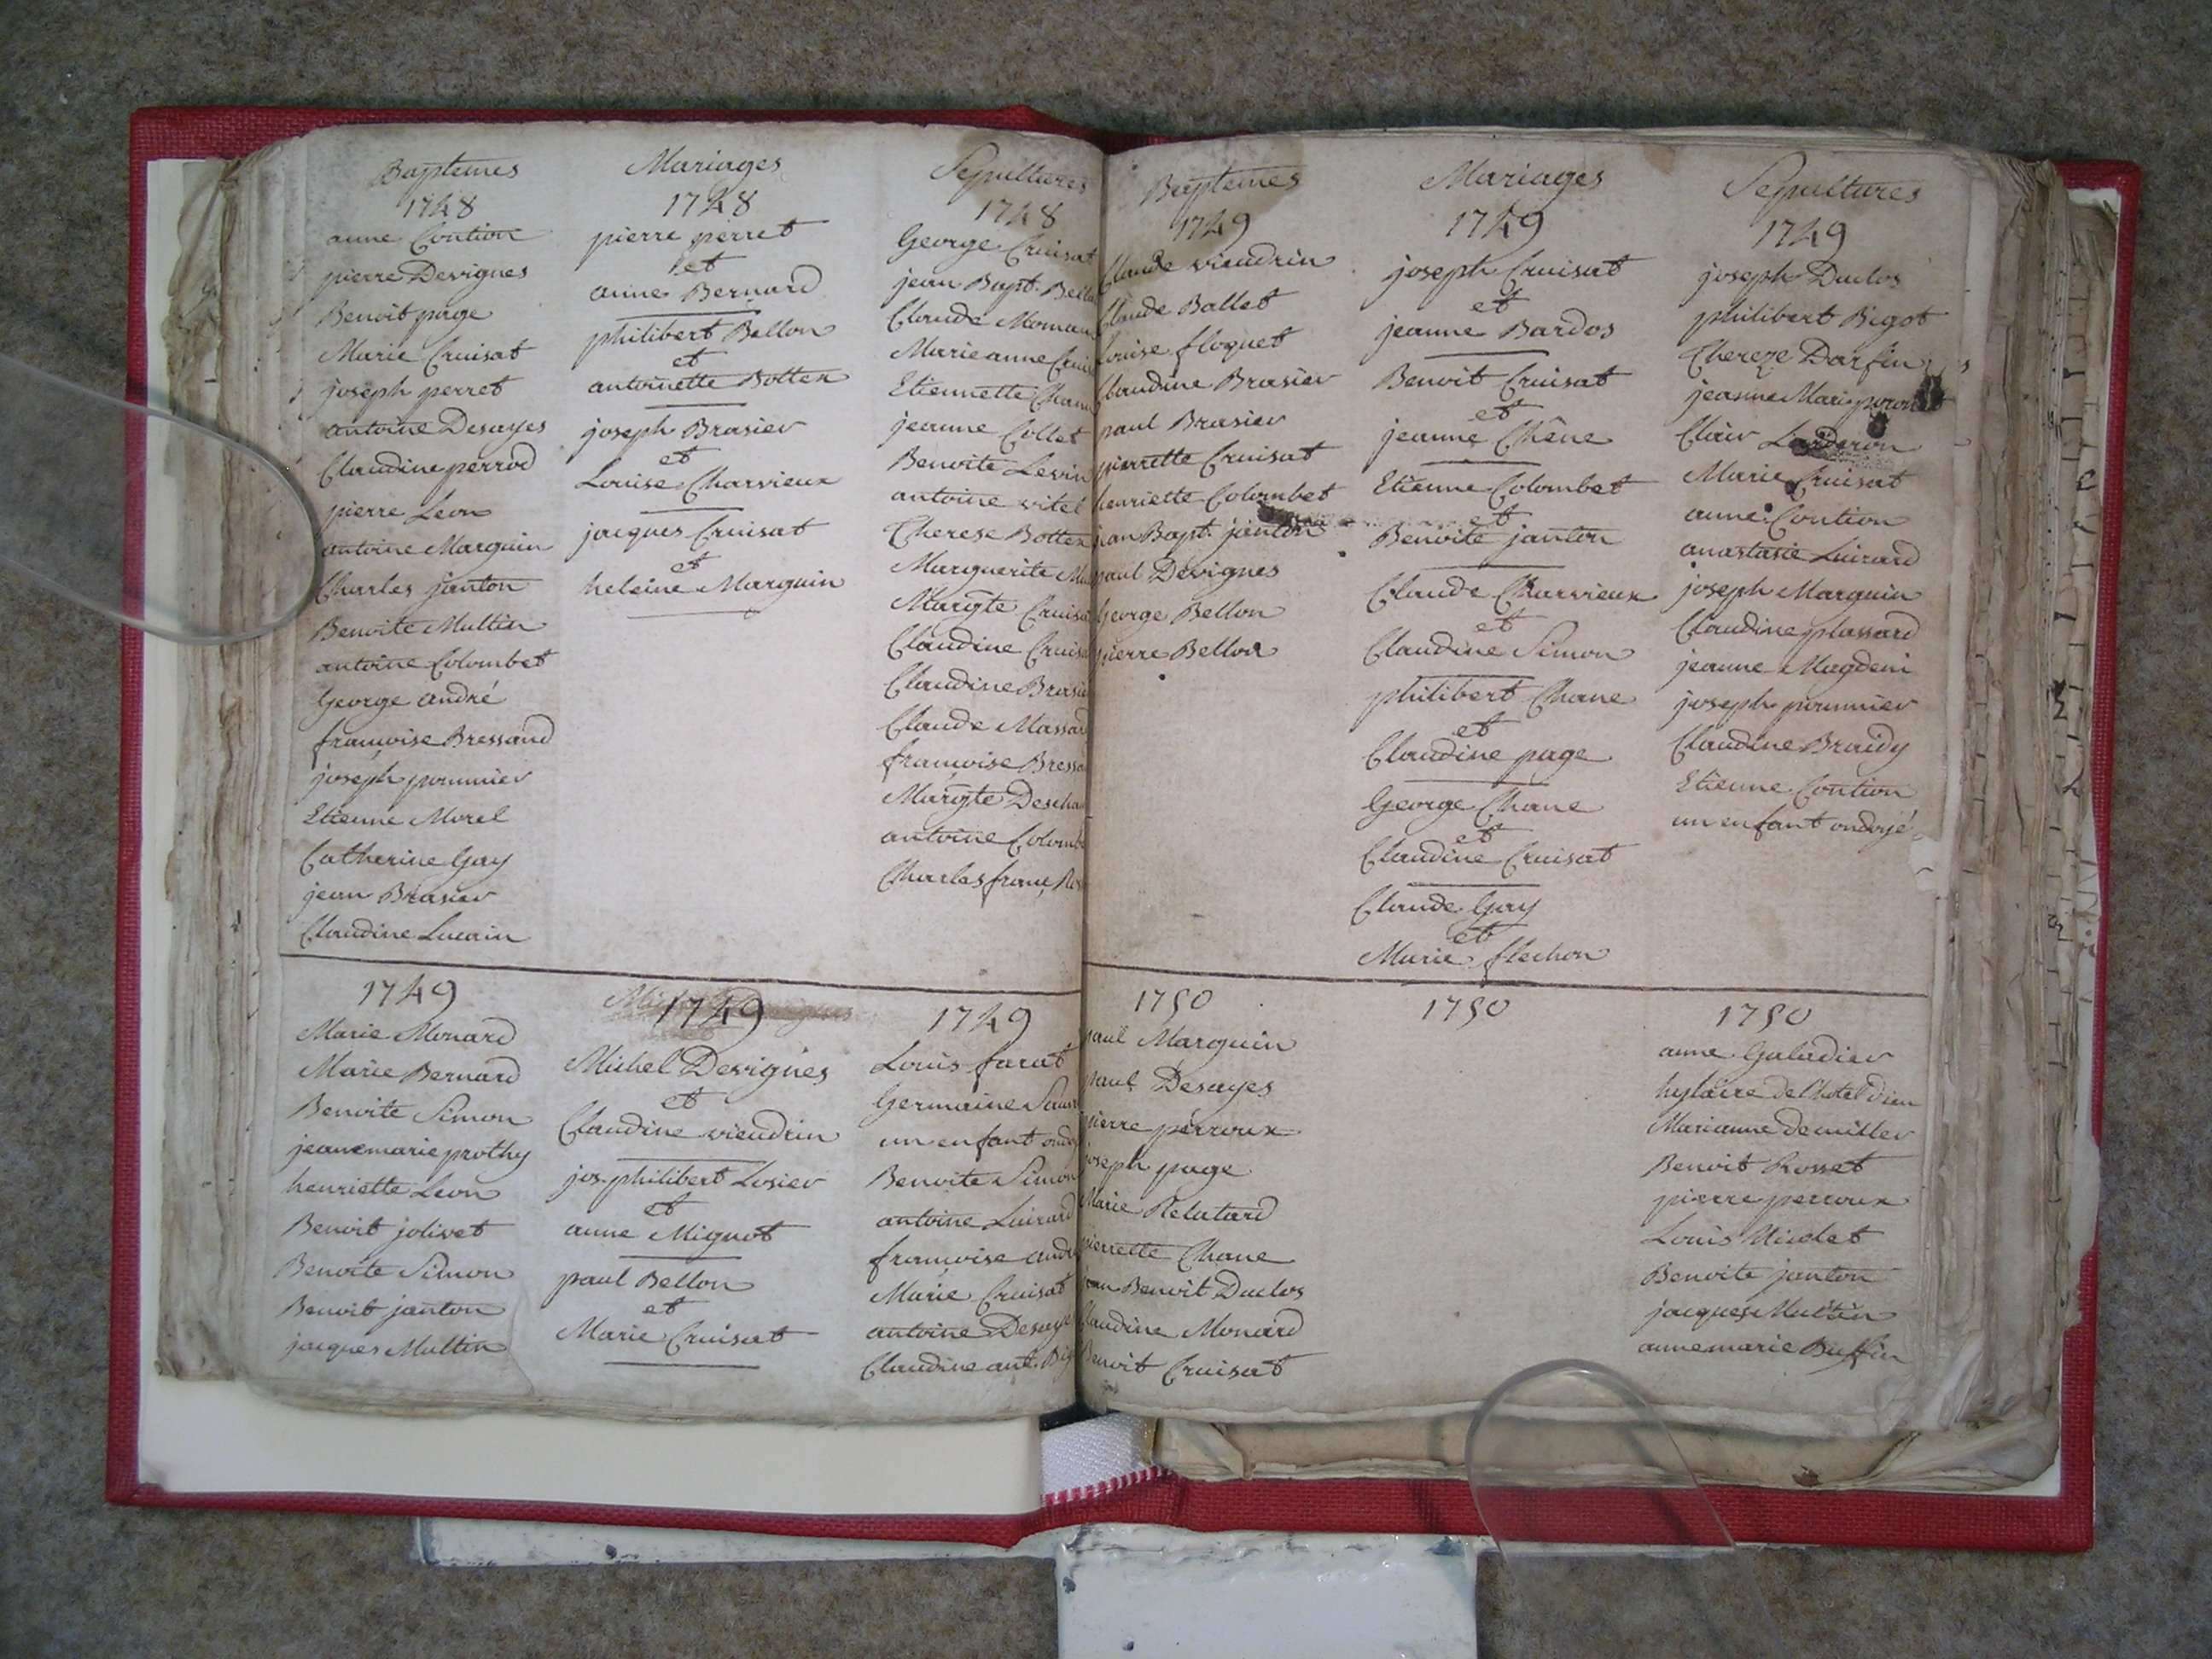 Baptemes
1748
anne Contion
pierre Devignes
Benoit page
Marie Cruisat
joseph perret
antoine Desayes
Claudine perrod
pierre Leon
antoine Marguin
Charles janton
Benoite Multin
antoine Colombet
George andré
françoise Bressand
joseph pommier
Etienne Morel
Catherine Gay
jean Brasier
Claudine Lucain
Mariages
1748
pierre perret
et
anne Bernard
philibert Bellon
et
antoinette Bottex
joseph Brasier
et
Louise Charvieux
jacques Cruisat
et
heleine Marguin
Sepultures
1748
George Cruisat
jean Bapt. Bello
Claude Moman
Marie anne Crui
Etiennette Chan
jeanne Collet
Benoite Levin
antoine vitel
Therese Bottex
Marguerite Mu
Margte Cruisa
Claudine Cruisa
Claudine Brasie
Claude Massar
françoise Bressa
Margte Descha
antoine Colomb
Charles franç
1749
Marie Monard
Marie Bernard
Benoite Simon
jeanemarie prothy
henriette Leon
Benoit jolivet
Benoite Simon
Benoit janton
jacques Multin
1749
Michel Devignes
et
Claudine vieudrin
jos. philibert Losier
et
anne Mignot
paul Bellon
et
Marie Cruisat
1749
Louis farat
Germaine
un enfant ondo
Benoite Simon
antoine Luirard
françoise andr
Marie Cruisat
antoine Desaye
Claudine ant. Big
Baptemes
1749
Claude vieudrin
Claude Ballet
Louise floquet
Claudine Brasier
paul Brasier
pierrette Cruisat
henriette Colombet
jean Bapt. janton
paul Devignes
George Bellon
pierre Bellon
Mariages
1749
joseph Cruisat
et
jeanne Bardos
Benoit Cruisat
et
jeanne Chêne
Etienne Colombet
et
Benoite janton
Claude Charvieux
et
Claudine Simon
philibert Chane
et
Claudine page
George Chane
et
Claudine Cruisat
Claude Gay
et
Marie flechon
Sepultures
1749
joseph Duclos
philibert Bigot
Thereze Darfin
jeanne Marie
Clair
Marie Cruisat
anne Contion
anastasie Luirard
joseph Marguin
Claudine plassard
jeanne Magdeni
joseph pommier
Claudine Braidy
Etienne Contion
un enfant ondoyé
1750
paul Marguin
paul Desayes
pierre perroux
joseph page
Marie Relutard
pierrette Chane
jean Benoit Duclos
Claudine Monard
Benoit Cruisat
1750
1750
anne Galadier
hylaire de l'hotel dieu
Marianne demiller
Benoit Rosset
pierre perroux
Louis Micolet
Benoite janton
jacques Multin
annemarie Buffin